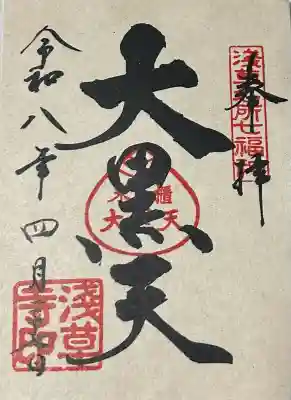 奉拝
浅草名所七福神
大黒天
米櫃
大天
令和八年四月
日
浅草
寺印